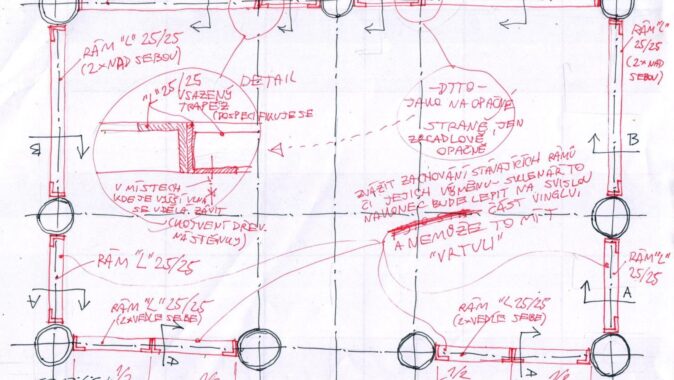 RÁM "L" 25/25
(2x NAD SEBOU)
"L" 25/25
VSAZENÝ
TRAPÉZ
(DOSPECIFIKUJE SE
DETAIL
V MÍSTECH
KDE JE VYŠŠÍ VLNA
SE UDĚLÁ ZÁVIT
(UKOTVENÍ DŘEV.
NÁSTĚNKY)
-DTTO-
JAKO NA OPAČNÉ
STRANĚ, JEN
ZRCADLOVĚ
OPAČNĚ
RÁM "L"
25/25
(2x NAD
SEBOU)
ZVÁŽIT ZACHOVÁNÍ STÁVAJÍCÍCH RÁMŮ
ČI JEJICH VÝMĚNU - SKLENÁŘ TO
NAKONEC BUDE LEPIT NA SVISLOU
ČÁST VINGLU,
A NEMŮŽE TO MÍT
"VRTULI"
B
B
RÁM "L" 25/25
RÁM "L"
25/25
A
A
RÁM "L" 25/25
(2x VEDLE SEBE)
RÁM "L" 25/25
(2x VEDLE SEBE)
D
D
1/2
1/2
1/2